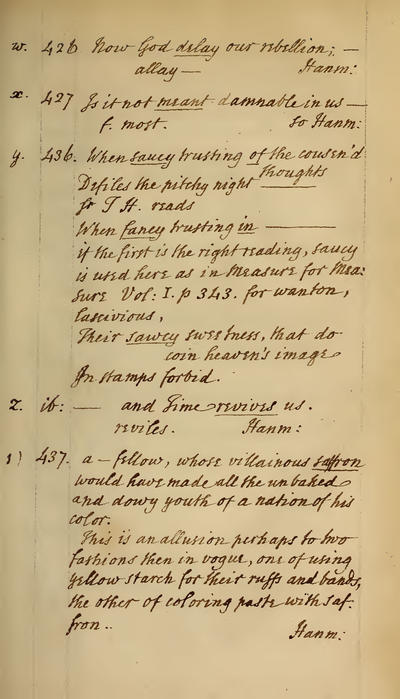 w. 426 Now God delay our rebellion; —
allay — Hanm:
x. 427 Is it not meant damnable in us —
f. most. So Hanm:
y. 436. When saucy trusting of the cousen'd
thoughts
Defiles the pitchy night
Sr T H. reads
When fancy trusting in
if the first is the right reading, saucy
is used here as in Measure for Mea:
sure Vol: I. p 343. for wanton,
lascivious,
Their sawcy sweetness, that do
coin heaven's image
In stamps forbid.
z. ib: — and Time revives us.
reviles. Hanm:
1) 437. a - fellow, whose villainous saffron
would have made all the unbaked
and dowy youth of a nation of his
color.
This is an allusion perhaps to two
fashions then in vogue, one of using
yellow starch for their ruffs and bands,
the other of coloring paste with saf:
fron..
Hanm: